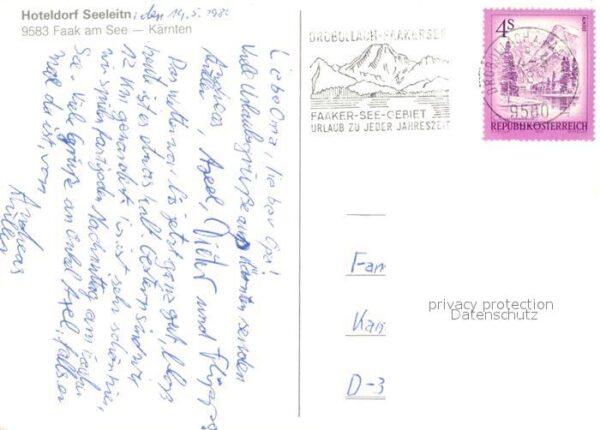 Hoteldorf Seeleitn, den 14.5.198
9583 Faak am See — Kärnten
Liebe Oma, lieber Opa!
Viele Urlaubsgrüße aus Kärnten senden
Andreas, Axel, und
Das Wetter war bis jetzt ganz gut, bloß
heut ist es etwas kalt. Gestern sind wir
12 km gewandert. Es ist sehr schön hier,
wir spielen fast jeden Nachmittag am
See. Viele Grüße an Onkel Axel, falls er
mal da ist, von
Andreas
DROBOLLACH-FAAKERSEE
FAAKER-SEE-GEBIET
URLAUB ZU JEDER JAHRESZEIT
4S
9580
REPUBLIK ÖSTERREICH
Fam
D-3
privacy protection
Datenschutz